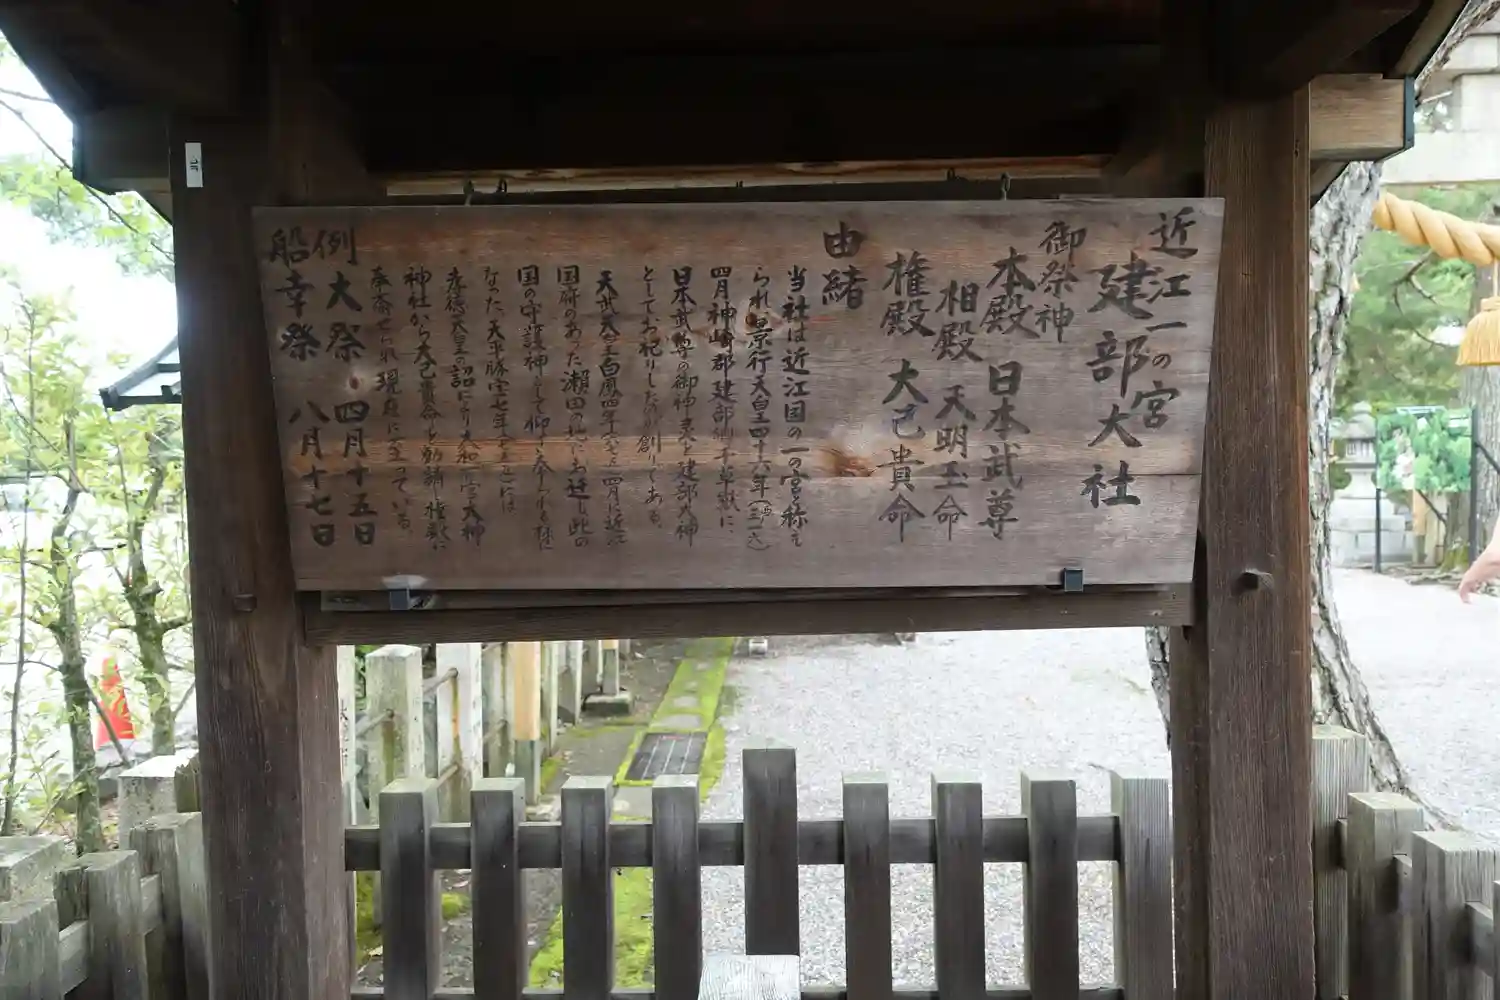 近江一の宮
建部大社
御祭神
本殿 日本武尊
相殿 天明玉命
権殿 大己貴命
由緒
当社は近江国の一の宮と称え
られ、景行天皇四十六年(三一六)
四月神崎郡建部郷千草嶽に、
日本武尊の御神霊を建部大神
としてお祀りしたのが創りである。
天武天皇白鳳四年(六七五)四月に近江
国府のあった瀬田の地にお遷し此の
国の守護神として仰ぎ奉られる様に
なった。天平勝宝七年(七五五)には
孝徳天皇の詔により大和一宮大神
神社から大己貴命を勧請し権殿に
奉斎せられ現在に至っている。
例大祭・四月十五日
船幸祭 八月十七日